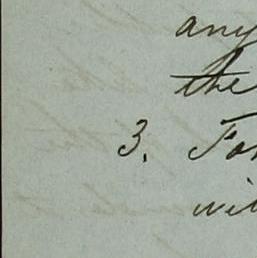 any
the
3. For
wil